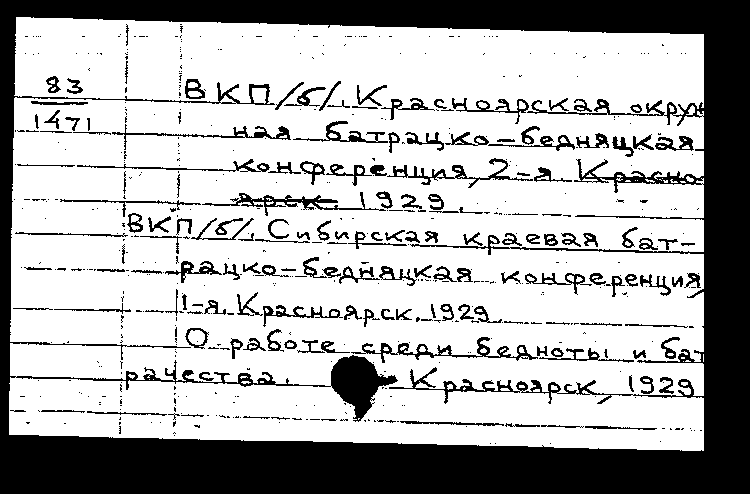 83
1471
ВКП/б/. Красноярская окруж
ная батрацко-бедняцкая
конференция, 2-я Красно
ярск. 1929.
ВКП/б/. Сибирская краевая бат-
рацко-бедняцкая конференция,
1-я. Красноярск. 1929.
О работе среди бедноты и бат
рачества. — Красноярск, 1929